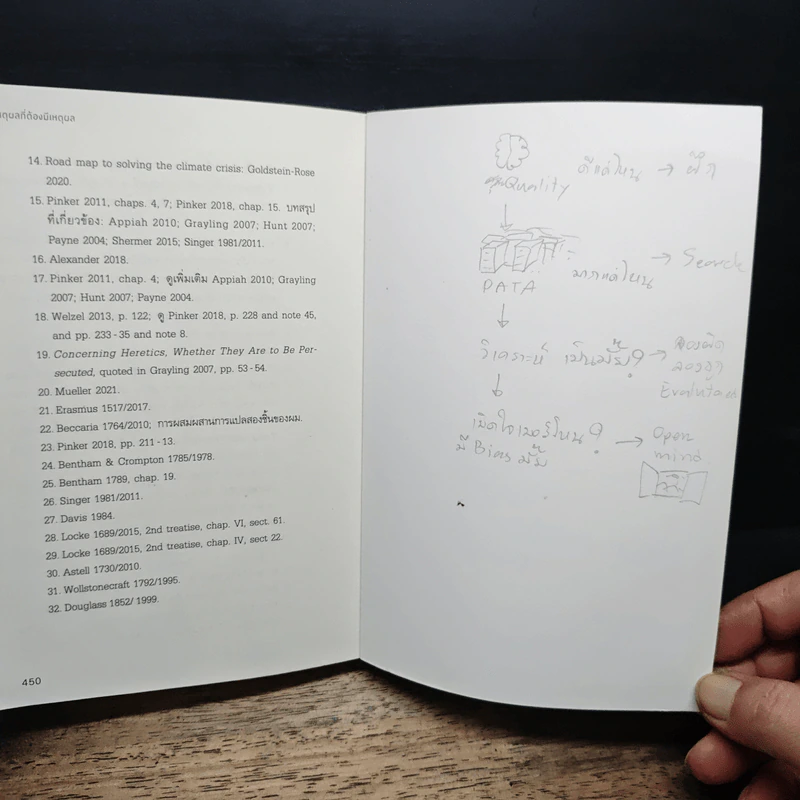 ตุผลที่ต้องมีเหตุผล
14. Road map to solving the climate crisis: Goldstein-Rose
2020.
15. Pinker 2011, chaps. 4, 7; Pinker 2018, chap. 15. บทสรุป
ที่เกี่ยวข้อง: Appiah 2010; Grayling 2007; Hunt 2007;
Payne 2004; Shermer 2015; Singer 1981/2011.
16. Alexander 2018.
17. Pinker 2011, chap. 4; ดูเพิ่มเติม Appiah 2010; Grayling
2007; Hunt 2007; Payne 2004.
18. Welzel 2013, p. 122; ดู Pinker 2018, p. 228 and note 45,
and pp. 233-35 and note 8.
19. Concerning Heretics, Whether They Are to Be Per-
secuted, quoted in Grayling 2007, pp. 53-54.
20. Mueller 2021.
21. Erasmus 1517/2017.
22. Beccaria 1764/2010; การผสมผสานการแปลสองชิ้นของผม.
23. Pinker 2018, pp. 211-13.
24. Bentham & Crompton 1785/1978.
25. Bentham 1789, chap. 19.
26. Singer 1981/2011.
27. Davis 1984.
28. Locke 1689/2015, 2nd treatise, chap. VI, sect. 61.
29. Locke 1689/2015, 2nd treatise, chap. IV, sect 22.
30. Astell 1730/2010.
31. Wollstonecraft 1792/1995.
32. Douglass 1852/ 1999.
450
Quality ดีแค่ไหน → ฝึก
DATA มากแค่ไหน → Search
วิเคราะห์ เป็นมั้ย? → ลองผิด
ลองถูก
เปิดใจ ? → Open
mind
มี Bias มั้ย